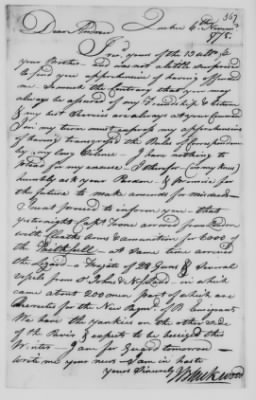 367
Dear Andrew Quebec 6 Novem
1775
I rec yours of the 13 ulto
your Brother and was not a little surprised
to find you apprehensive of having offend
me so much the Contrary that you may
always be assured of my Friendship & Esteem
& my best Services are always at your Comand
I in my turn must express my apprehensions
of having transgressed the Rules of Correspondence
by my long Silence I have nothing to
plead for my excuse I therefor
humbly ask your Pardon & Promise for
the future to make amends for misconduct
I must proceed to inform you that
yesternight Capt arrived from London
with Cloaths Arms & Amunition for 6000 of
the Faithfull at same time arrived
the Lizard a Frigate of 28 Guns & Several
vessels from St Johns & in which
came about 200 men part of which are
Recruits for the New of R Emigrant
We have the yankies on the other side
of the River & expect to be besieged this
Winter I am for Guard tomorrow
write me your news I am in haste
yours Sincerely